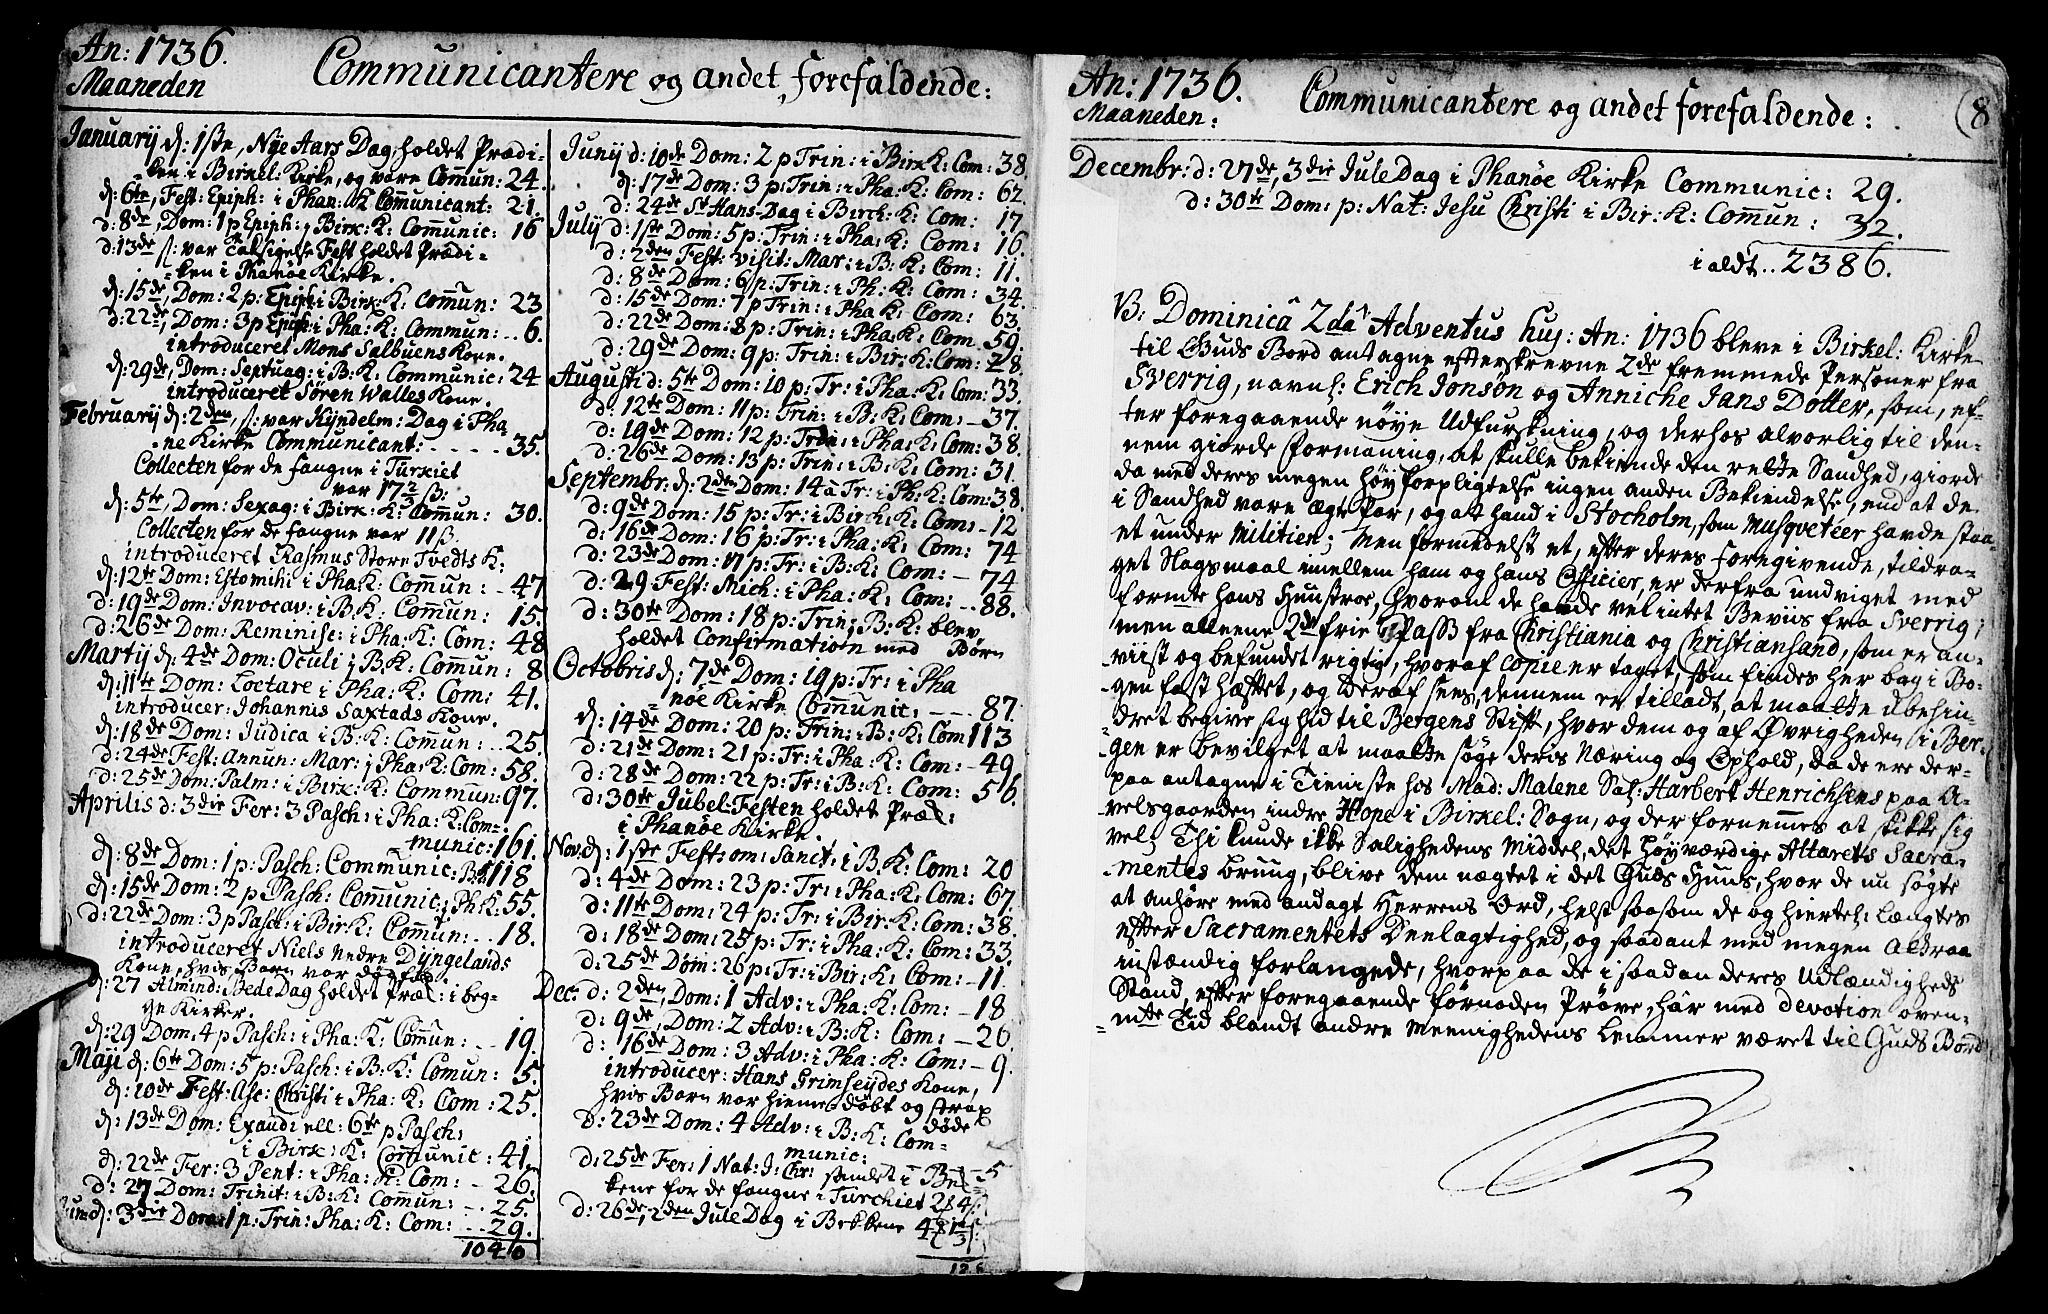 An: 1736.
Maaneden
Communicantere og andet forefaldende:
Januarij d: 1ste, Nye Aars Dag holdet Prædi-
ken i Birkel: Kirke, og vare Comun: 24.
d: 6te, Fest: Epiph: i Phan: K Comunicant: 21.
d: 8de, Dom: 1 p Epiph: i Birk: K: Comunic: 16
d: 13de /: var Taksigelse Fest holdet Prædi-
ken i Phanøe Kirke.
d: 15de, Dom: 2 p: Epiph i Birk: K: Comun: 23
d: 22de, Dom: 3 p Epiph: i Pha: K: Commun: .. 6.
introduceret Mons Salbuens Kone.
d: 29de, Dom: Septuag: i B: K: Communic: 24
introduceret Søren Walles Kone.
Februarij d: 2den, /: var Kyndelm: Dag i Pha
ne Kirke Communicant: - - - - - 35.
Collecten for de fangne i Türkiet
var 17 2/3 ß:
d: 5te, Dom: Sexag: i Birk: K: Comun: 30.
Collecten for de fangne var 11 ß.
introduceret Rasmus Store Tvedts K:
d: 12te Dom: Estomihi i Pha: K: Comun: - 47
d: 19de Dom: Invocav: i B: K: Comun: 15.
d: 26de Dom: Reminisc: i Pha: K: Com: 48
Martij d: 4de Dom: Oculi i B: K: Comun: 8
d: 11te Dom: Lætare i Pha: K: Com: 41.
introducer: Johannis Saxtads Kone.
d: 18de Dom: Judica i B: K: Comun: .. 25.
d: 24de Fest: Annun: Mar: i Pha: K: Com: 58.
d: 25de Dom: Palm: i Birk: K: Commun: 97.
Aprilis d: 3die Fer: 3 Pasch: i Pha: K: Com-
munic: 161.
d: 8de Dom: 1 p: Pasch: Communic: B: K 118
d: 15de Dom: 2 p: Pasch: Comunic: i Ph: K: 55.
d: 22de Dom: 3 p Pasch: i Birk: K: Comun: .. 18.
introduceret Niels Nedre Dyngelands
Kone, hvis Barn var
d: 27 Almind: Bede Dag holdet Præd: i beg-
ge Kirker.
d: 29 Dom: 4 p: Pasch: i Pha: K: Comun: .. 19.
Maji d: 6te Dom: 5 p: Pasch: i B: K: Comun: 5.
d: 10de Fest: Asc: Christi i Pha: K: Com: 25.
d: 13de Dom: Exaudi ell: 6te p Pasch:
i Birk: K: Comunic: 41.
d: 22de Fer: 3 Pent: i Pha: K: Com: - 26.
d: 27 Dom: Trinit: i B: K: Comun: .. 25.
Junii d: 3die Dom: 1 p: Trin: Pha: K: Com: .. 29.
1040
Junij d: 10de Dom: 2 p Trin: i Birk: K: Com: 38.
d: 17de Dom: 3 p: Trin: i Pha: K: Com: 62.
d: 24de St Hans-Dag i Birck: K: Com: 17
July d: 1ste Dom: 5 p: Trin: i Pha: K: Com: 16.
d: 2den Fest: visit: Mar: i B: K: Com: 11.
d: 8de Dom: 6 p: Trin: i Ph: K: Com: 34.
d: 15de Dom: 7 p Trin: i Pha K: Com: 63.
d: 22de Dom: 8 p: Trin: i Pha: K: Com. 59.
d: 29de Dom: 9 p: Trin: i Bir: K: Com: 28.
Augusti d: 5te Dom: 10 p: Tr: i Pha: K: Com: 33.
d: 12te Dom: 11 p: Trin: i B: K: Com: - 37.
d: 19de Dom: 12 p: Trin: i Pha: K: Com: 38.
d: 26de Dom: 13 p: Trin: i B: K: Com: 31.
Septembr: d: 2den Dom: 14 a Tr: i Ph: K: Com: 38.
d: 9de Dom: 15 p: Tr: i Birch: K: Com: - 12
d: 16de Dom: 16 p: Tr: i Pha: K: Com: 74
d: 23de Dom: 17 p: Tr: i B: K: Com: - 74
d: 29 Fest: Mich: i Pha: K: Com: .. 88.
d: 30te Dom: 18 p: Trin: i B: K: blev
holdet Confirmation med Børn
Octobris d: 7de Dom: 19 p: Tr: i Pha
nøe Kirke Comunic: - - - 87.
d: 14de Dom: 20 p: Trin: i B: K: Com 113
d: 21de Dom: 21 p: Tr: i Pha: K: Com: - 49
d: 28de Dom: 22 p: Tr: i B: K: Com: 56.
d: 30te Jubel-Festen holdet Præd:
i Phanøe Kirke.
Nov. d: 1ste Fest: om: Sanct: i B: K: Com: 20
d: 4de Dom: 23 p: Tr: i Pha: K: Com: 67.
d: 11te Dom: 24 p: Tr: i Bir: K: Com: 38.
d: 18de Dom: 25 p: Tr: i Pha: K: Com: 33.
d: 25de Dom: 26 p: Tr: i Bir: K: Com: - 11.
Dec: d: 2den, Dom: 1 Adv: i Pha: K: Com: - 18
d: 9de, Dom: 2 Adv: i B: K: Com: - 26.
d: 16de Dom: 3 Adv: i Pha: K: Com: - 9.
introducer: Hans Grimseydes Kone,
hvis Barn var hieme døbt og strax
døde
d: 23de Dom: 4 Adv: i B: K: Com-
munic:
d: 25de Fer: 1 Nat: J: Chr: samlet i Bek- - 5
kene for de fangne i Turchiet
d: 26de, 2den Jule Dag i Bekkene
An: 1736.
Maaneden:
Communicantere og andet forefaldende:
(8
Decembr: d: 27de, 3die Jule Dag i Phanøe Kirke Communic: 29.
d: 30te Dom: p: Nat: Jesu Christi i Bir: K: Comun: 32.
i aldt .. 2386.
B: Dominicâ 2dâ Adventus huj: An: 1736 bleve i Birkel: Kirke
til Guds Bord antagne efterskrevne 2de fremmede Personer fra
Sverrig, navnl: Erich Jonson og Anniche Jans Dotter, som, ef-
ter foregaaende nøye Udfurskning, og derhos alvorlig til den-
nem giorde formaning, at skulle bekiende den rette Sandhed, giorde
da med deres megen høy forpligtelse ingen anden Bekiendelse, end at de
i Sandhed vare Ægte Par, og at hand i Stocholm, som Musqveteer havde staa-
et under Militien; Men formedelst et, efter deres foregivende, tildra-
get Slagsmaal imellem ham og hans Officier, er derfra undviget med
formte hans Huustroe, hvorom de havde vel intet Beviis fra Sverrig;
men alleene 2de frie Pass fra Christiania og Christiansand, som er an-
viist og befundet rigtig, hvoraf Copie er taget, som findes her bag i Bo-
gen fast hæftet, og deraf sees, dennem er tilladt, at maatte übehin-
dret begive sig hid til Bergens Stift, hvor dem og af Øvrigheden i Ber-
gen er bevilget at maatte søge deris Næring og Ophold, da de ere der-
paa antagne i Tieniste hos Mad: Malene Sal: Harbert Henrichsens paa A-
velsgaarden indre Hope i Birkel: Sogn, og der fornemmes at skikke sig
vel; Thi kunde ikke Salighedens Middel, det Høyværdige Altarets Sacra-
mentes brüng, blive dem nægtet i det Guds Huus, hvor de nu søgte
at anhøre med andagt Herrens Ord, helst saasom de og hiertel: længtes
efter Sacramentets Deelagtighed, og saadant med megen Aldraa
instændig forlangede, hvorpaa de i saadan deres Udlændigheds
Stand, efter foregaaende fornøden Prøve, har med devotion oven-
mte Tid blandt andre Meenighedens Lemmer været til Guds Bord